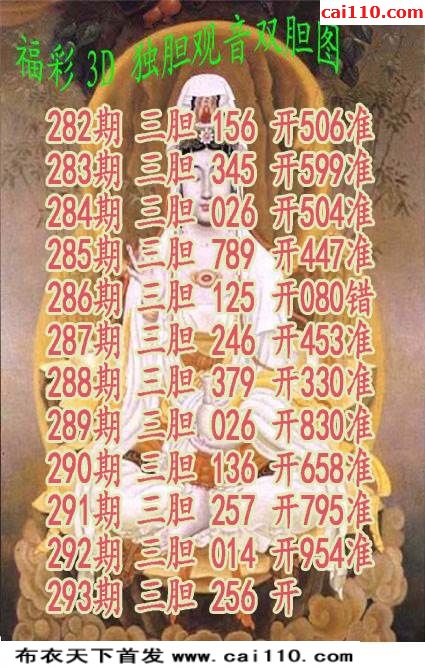 彩人网
cai110.com
福彩3D 独胆观音双胆图
282期 三胆 156 开506准
283期 三胆 345 开599准
284期 三胆 026 开504准
285期 三胆 789 开447准
286期 三胆 125 开080错
287期 三胆 246 开453准
288期 三胆 379 开330准
289期 三胆 026 开830准
290期 三胆 136 开658准
291期 三胆 257 开795准
292期 三胆 014 开954准
293期 三胆 256 开
布衣天下首发 www.cai110.com